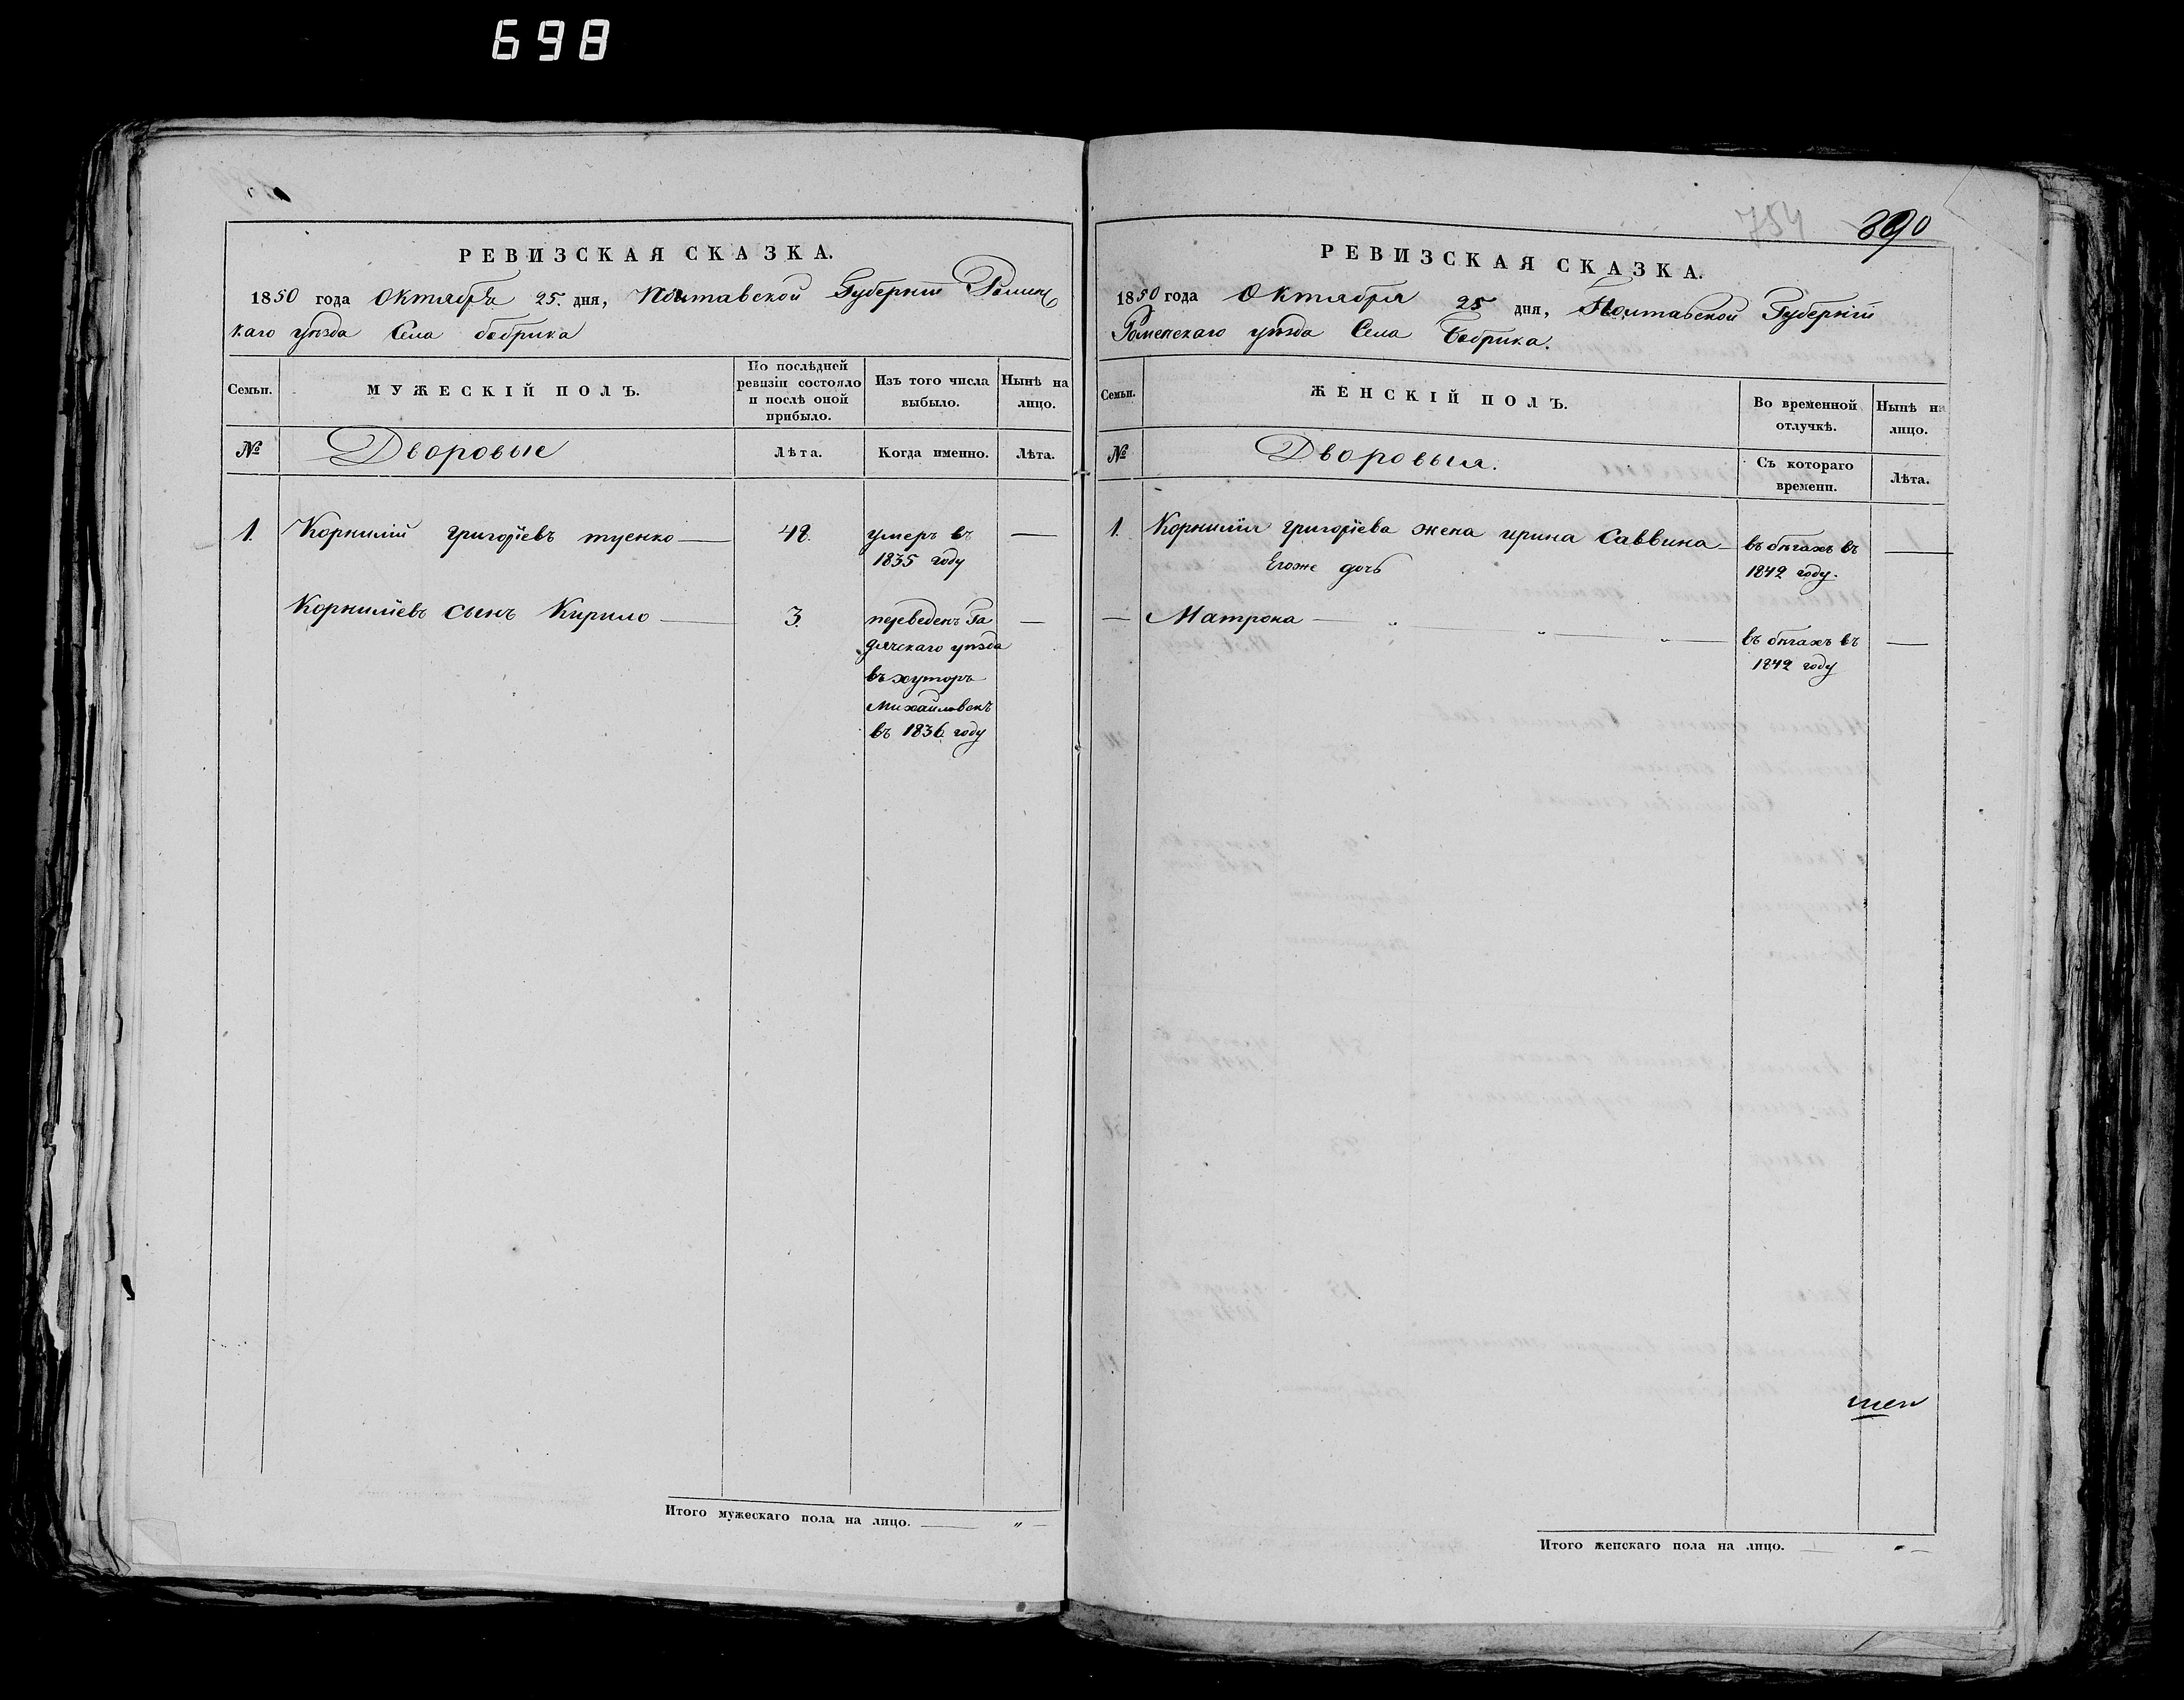 698
РЕВИЗСКАЯ СКАЗКА.
1850 года Октября 25. дня, Полтавской Губернии Роменс
каго уѣзда Села бобрика
Семьи.
МУЖЕСКІЙ ПОЛЪ.
По послѣдней
ревизіи состояло
и послѣ оной
прибыло.
Изъ того числа
выбыло.
Нынѣ на
лицо.
№
Дворовые
Лѣта.
Когда именно.
Лѣта.
1. Корнилій григоріевъ туенко — 48. умеръ въ —
1835 году
Корниліевъ сынъ Кирило — 3. переведенъ Га —
дячскаго уѣзда
въ хуторъ
Михайловскъ
въ 1836 году
Итого мужескаго пола на лицо. — „ —
754 890
РЕВИЗСКАЯ СКАЗКА.
1850 года Октября 25 дня, Полтавской Губерніи
Роменскаго уѣзда Села Бобрика.
Семьи.
ЖЕНСКІЙ ПОЛЪ.
Во временной
отлучкѣ.
Нынѣ на
лицо.
№
Дворовыя.
Съ котораго
времени.
Лѣта.
1. Корнилія григоріева жена ирина Саввина — въ бѣгахъ въ —
Егоже дочь 1842 году.
— Матрона — „ — „ — „ — въ бѣгахъ въ —
1842 году
Итого женскаго пола на лицо. — „ —